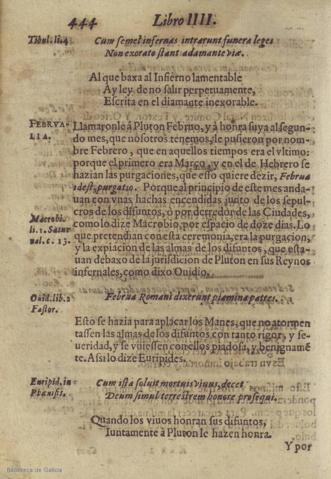 444 Libro IIII.
Tibul. li. 4 Cum semel infernas intrarunt funera leges
Non exorato stant adamante viæ.
Al que baxa al Infierno lamentable
Ay ley de no salir perpetuamente,
Escrita en el diamante inexorable.
FEBRVA-
LIA.
Llamaronle à Pluton Februo, y à honra suya al segun-
do mes, que nosotros tenemos, le pusieron por nom-
bre Febrero, que en aquellos tiempos era el vltimo:
porque el primero era Março, y en el de Hebrero se
hazian las purgaciones, que esso quiere dezir, Februa
idest, purgatio. Porque al principio de este mes anda-
uan con vnas hachas encendidas junto de los sepul-
cros de los difuntos, ò por derredor de las Ciudades,
como lo dize Macrobio, por espacio de doze dias. Lo
que pretendian con esta ceremonia, era la purgacion,
y la expiacion de las almas de los difuntos, que esta-
uan debaxo de la jurisdicion de Pluton en sus Reynos
infernales, como dixo Ouidio.
Macrobi.
li. 1. Satur
nal. c. 13.
Ouid. lib. 2
Fastor.
Februa Romani dixerunt piamina patres.
Esto se hazia para aplacar los Manes, que no atormen
tassen las almas de los difuntos con tanto rigor, y se-
ueridad, y se vuiessen con ellos piadosa, y benignamē-
te. Assi lo dize Euripides.
Euripid. in
Phænisis.
Cum ista soluit mortuis viuus, decet
Deum simul terrestrem honore prosequi.
Quando los viuos honran sus difuntos,
Iuntamente à Pluton le hazen honra.
Y por
Biblioteca de Galicia